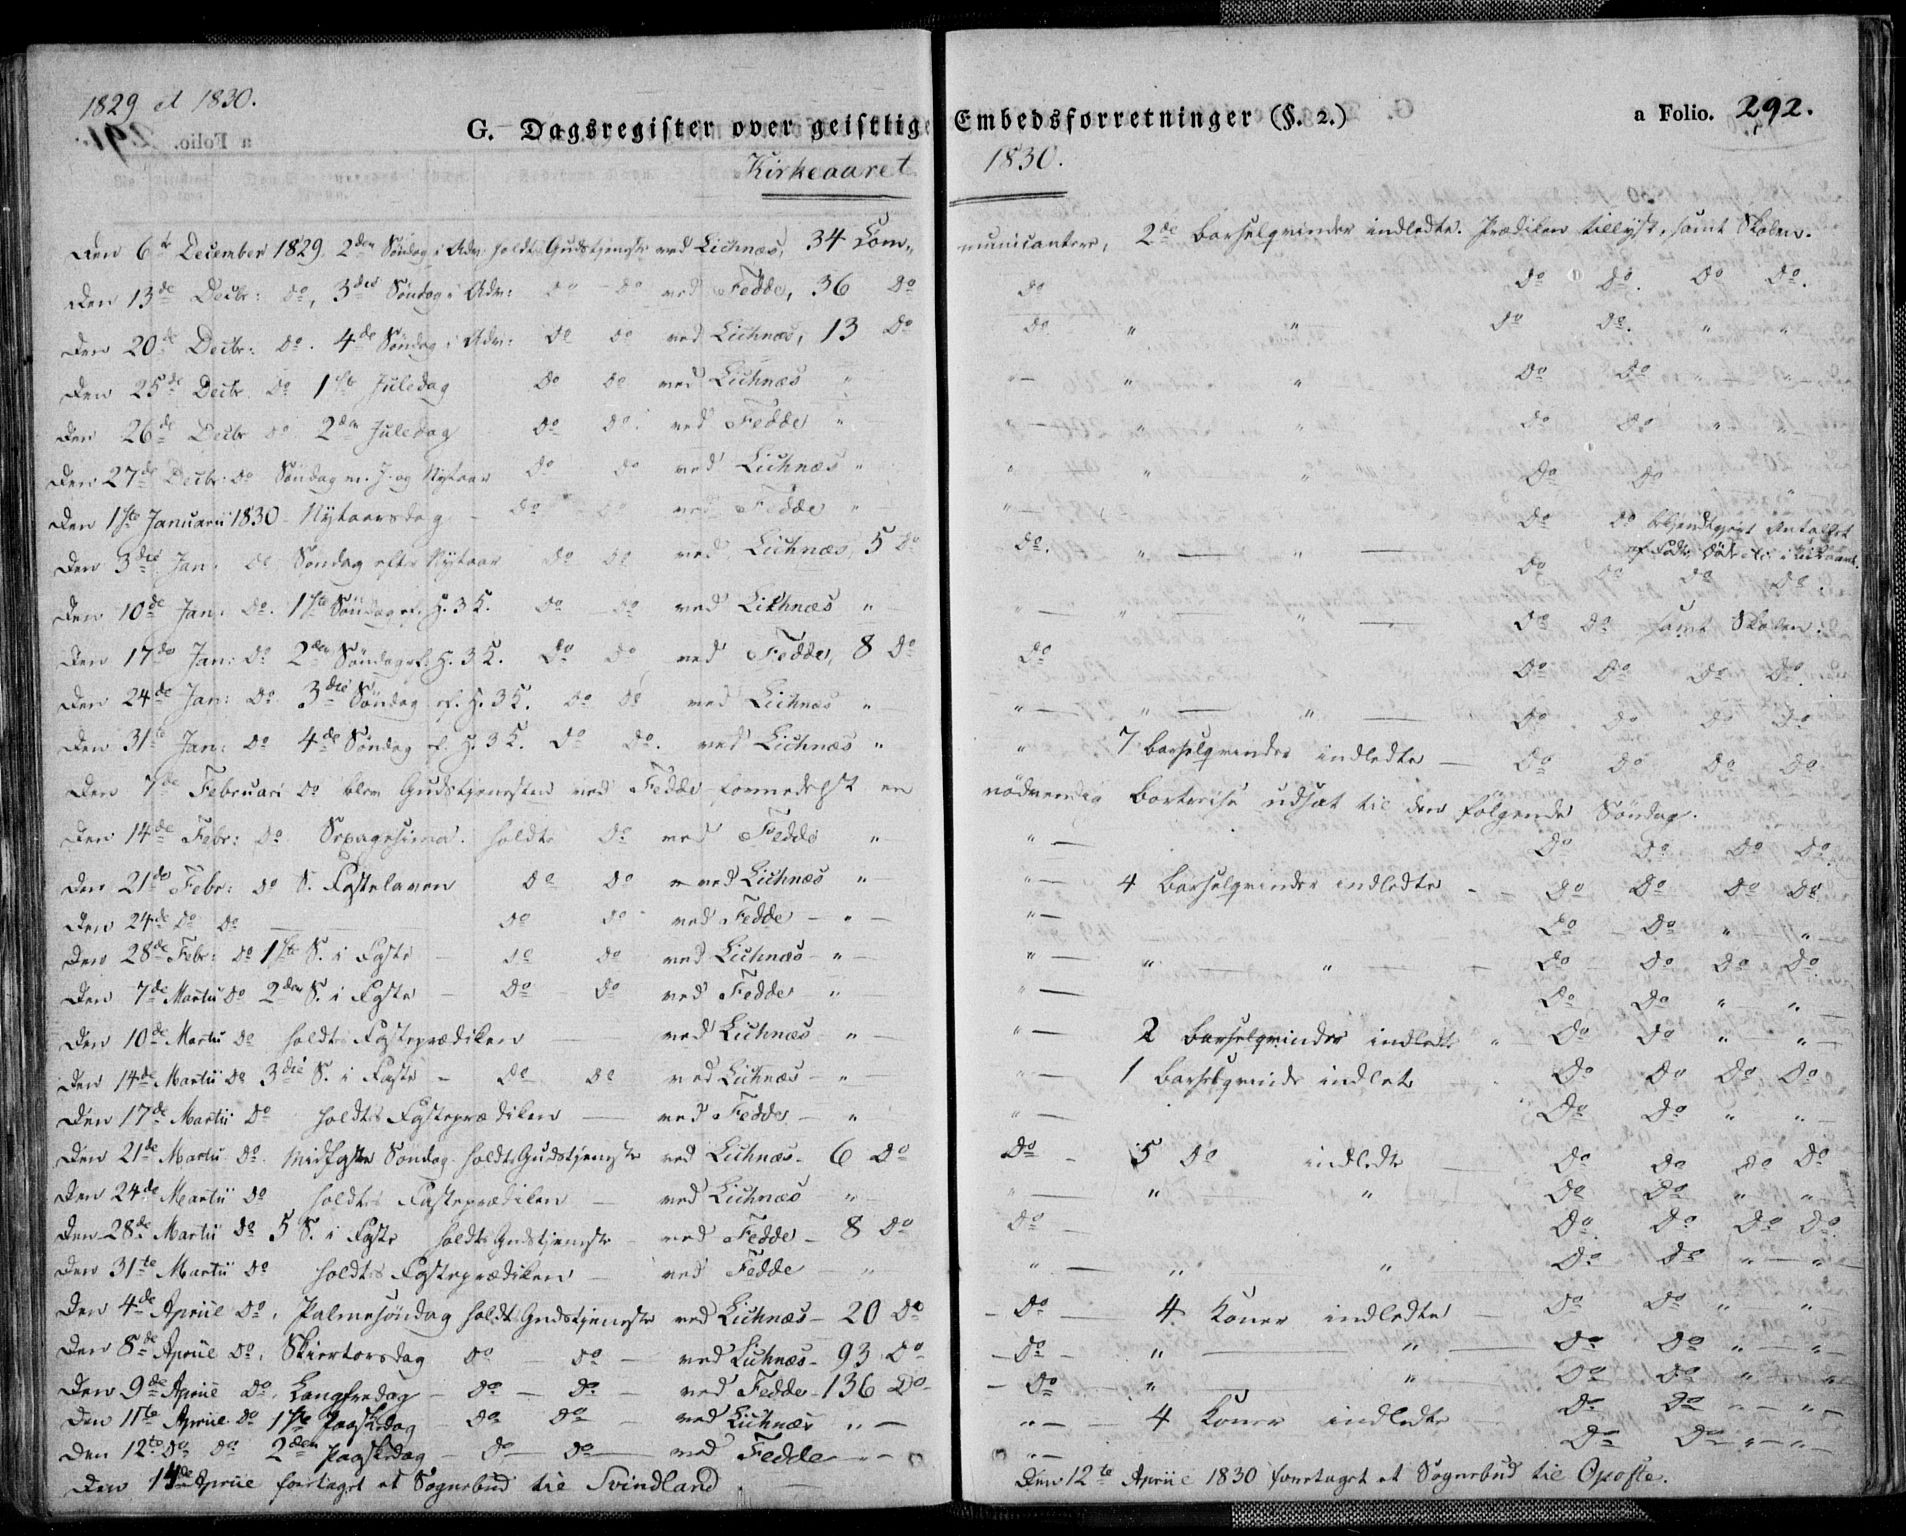 1829 et 1830.
G. Dagsregister over geistlige Embedsforretninger (§. 2.) a Folio. 292.
Kirkeaaret 1830.
Den 6te December 1829, 2den Söndag i Adv: holdt Gudstjeneste ved Lichnæs, 34 Communicantere, 2de Barselqvinder indledte. Prædiken tillyst, samt Skolen.
Den 13de Decbr: do, 3die Söndag i Adv: do - do ved Fedde, 36 do do do do. do do.
Den 20de Decbr: do. 4de Söndag i Adv: do do ved Lichnæs, 13 do do " " do do. " "
Den 25de Decbr do 1ste Juledag do do ved Lichnæs " " — " " do do " "
Den 26de Decbr do. 2den Juledag do do. ved Fedde " " — " " do do " "
Den 27de Decbr: do Söndag m. J. og Nytaar do do ved Lichnæs " " " " do do " "
Den 1ste Januarii 1830 - Nytaarsdag - do - do ved Fedde " " — do do bekjendtgjort Antallet
Den 3die Jan: do Söndag efter Nytaar do do ved Lichnæs, 5 do do. " — " — do do do do.
af Fødte, Døde
Den 10de Jan: do. 1ste Söndag ef. H. 3 K. do do ved Lichnæs " " — " — " — do do samt Skolen.
Den 17de Jan: do 2den Söndag ef. H. 3 K. do do ved Fedde, 8 do do do do do do.
Den 24de Jan: do 3die Söndag ef. H. 3 K. do do ved Lichnæs " " — " — " — do. do do do
Den 31te Jan: do 4de Söndag ef. H. 3 K. do do. ved Lichnæs " " 7 Barselqvinder indledte — do do do do
Den 7de Februari do blev Gudstjenesten ved Fedde formedelst en nödvendig Bortreise udsat til den fölgende Söndag.
Den 14de Febr: do Sepagesima. holdt do ved Fedde " " — do do do do.
Den 21de Febr: do S. Fastelaven do do ved Lichnæs " " — 4 Barselqvinder indledte - - do do do do
Den 24de do do — do do ved Fedde — " — " — do - do " — " —
Den 28de Febr: do 1ste S. i Faste - do do ved Lichnæs - " — " — " — " - do - do do do
Den 7de Martii do 2den S. i Faste - do - do ved Fedde - " " — do do " — " —
Den 10de Martii do holdt Fasteprædiken — ved Lichnæs - " — " — 2 Barselqvinder indledte " do do " — " —
Den 14de Martii do 3die S. i Faste - do do ved Lichnæs - " — " — 1 Barselqvinde indlet do do do do
Den 17de Martii do holdt Fasteprædiken — ved Fedde - " " — do do " " —
Den 21de Martii do. Midfaste Söndag holdt Gudstjeneste ved Lichnæs - 6 do do - 5 do indledte — do do do do
Den 24de Martii do holdt Fasteprædiken — ved Lichnæs " " — " " do do " — " —
Den 28de Martii do 5 S. i Faste holdt Gudstjeneste - ved Fedde - 8 do do - do do do do.
Den 31te Martii do holdt Fasteprædiken — ved Fedde — " " — " " do - do " — " —
Den 4de Apriil do, Palmesöndag holdt Gudstjeneste ved Lichnæs - 20 do - do — 4 Koner indledte — do do " "
Den 8de Apriil do, Skiertorsdag do — do — ved Lichnæs - 93 do - do - " — " — do do " — " —
Den 9de Apriil do, Langfredag - do - do. — ved Fedde - 136 do - do — " — " do do " "
Den 11te Apriil do 1ste Paaskedag - do do — ved Lichnæs " — " — 4 Koner indledte do do " — " —
Den 12te do do 2den Paaskedag - do — do — ved Fedde - " - " — do do " — " —
Den 14de Apriil foretaget et Sognebud til Svindland. —
Den 12te Apriil 1830 foretaget et Sognebud til Opofte.